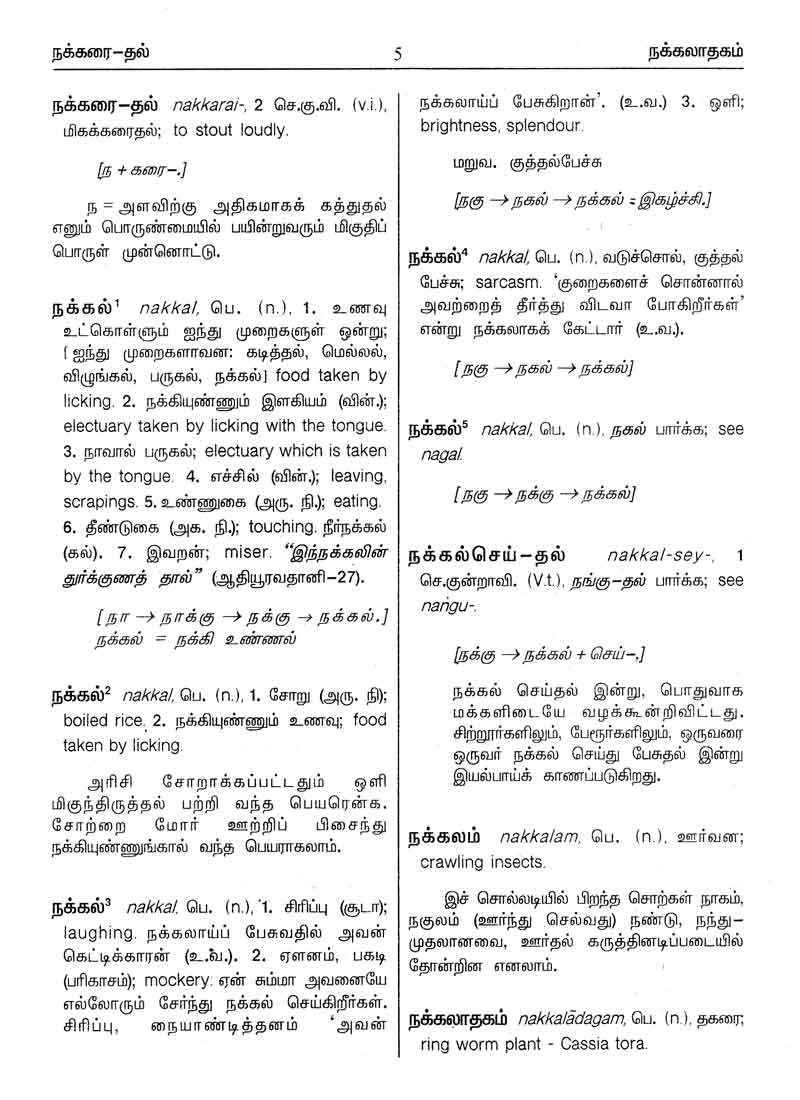 நக்கரை–தல்
5
நக்கலாதகம்
நக்கரை–தல் nakkarai-, 2 செ.கு.வி. (v.i.),
மிகக்கரைதல்; to stout loudly.
[ந + கரை–.]
ந = அளவிற்கு அதிகமாகக் கத்துதல்
எனும் பொருண்மையில் பயின்றுவரும் மிகுதிப்
பொருள் முன்னொட்டு.
நக்கல்¹ nakkal, பெ. (n.), 1. உணவு
உட்கொள்ளும் ஐந்து முறைகளுள் ஒன்று;
[ ஐந்து முறைகளாவன: கடித்தல், மெல்லல்,
விழுங்கல், பருகல், நக்கல்] food taken by
licking. 2. நக்கியுண்ணும் இளகியம் (வின்.);
electuary taken by licking with the tongue.
3. நாவால் பருகல்; electuary which is taken
by the tongue. 4. எச்சில் (வின்.); leaving,
scrapings. 5. உண்ணுகை (அரு. நி.); eating.
6. தீண்டுகை (அக. நி.); touching. நீர்நக்கல்
(கல்). 7. இவறன்; miser. “இந்நக்கலின்
துர்க்குணத் தால்” (ஆதியூரவதானி–27).
[நா → நாக்கு → நக்கு → நக்கல்.]
நக்கல் = நக்கி உண்ணல்
நக்கல்² nakkal, பெ. (n.), 1. சோறு (அரு. நி);
boiled rice. 2. நக்கியுண்ணும் உணவு; food
taken by licking.
அரிசி சோறாக்கப்பட்டதும் ஒளி
மிகுந்திருத்தல் பற்றி வந்த பெயரென்க.
சோற்றை மோர் ஊற்றிப் பிசைந்து
நக்கியுண்ணுங்கால் வந்த பெயராகலாம்.
நக்கல்³ nakkal, பெ. (n.), 1. சிரிப்பு (சூடா);
laughing. நக்கலாய்ப் பேசுவதில் அவன்
கெட்டிக்காரன் (உ.வ.). 2. ஏளனம், பகடி
(பரிகாசம்); mockery: ஏன் சும்மா அவனையே
எல்லோரும் சேர்ந்து நக்கல் செய்கிறீர்கள்.
சிரிப்பு, நையாண்டித்தனம் ‘அவன்
நக்கலாய்ப் பேசுகிறான்’. (உ.வ.) 3. ஒளி;
brightness, splendour.
மறுவ. குத்தல்பேச்சு
[நகு → நகல் → நக்கல் = இகழ்ச்சி.]
நக்கல்⁴ nakkal, பெ. (n.), வடுச்சொல், குத்தல்
பேச்சு; sarcasm. ‘குறைகளைச் சொன்னால்
அவற்றைத் தீர்த்து விடவா போகிறீர்கள்’
என்று நக்கலாகக் கேட்டார் (உ.வ.).
[நகு → நகல் → நக்கல்]
நக்கல்⁵ nakkal, பெ. (n.), நகல் பார்க்க; see
nagal.
[நகு → நக்கு → நக்கல்]
நக்கல்செய்–தல் nakkal-sey-, 1
செ.குன்றாவி. (V.t.), நங்கு–தல் பார்க்க; see
naṅgu-.
[நக்கு → நக்கல் + செய்–.]
நக்கல் செய்தல் இன்று, பொதுவாக
மக்களிடையே வழக்கூன்றிவிட்டது.
சிற்றூர்களிலும், பேரூர்களிலும், ஒருவரை
ஒருவர் நக்கல் செய்து பேசுதல் இன்று
இயல்பாய்க் காணப்படுகிறது.
நக்கலம் nakkalam, பெ. (n.), ஊர்வன;
crawling insects.
இச் சொல்லடியில் பிறந்த சொற்கள் நாகம்,
நகுலம் (ஊர்ந்து செல்வது) நண்டு, நந்து–
முதலானவை, ஊர்தல் கருத்தினடிப்படையில்
தோன்றின எனலாம்.
நக்கலாதகம் nakkalādagam, பெ. (n.), தகரை;
ring worm plant - Cassia tora.